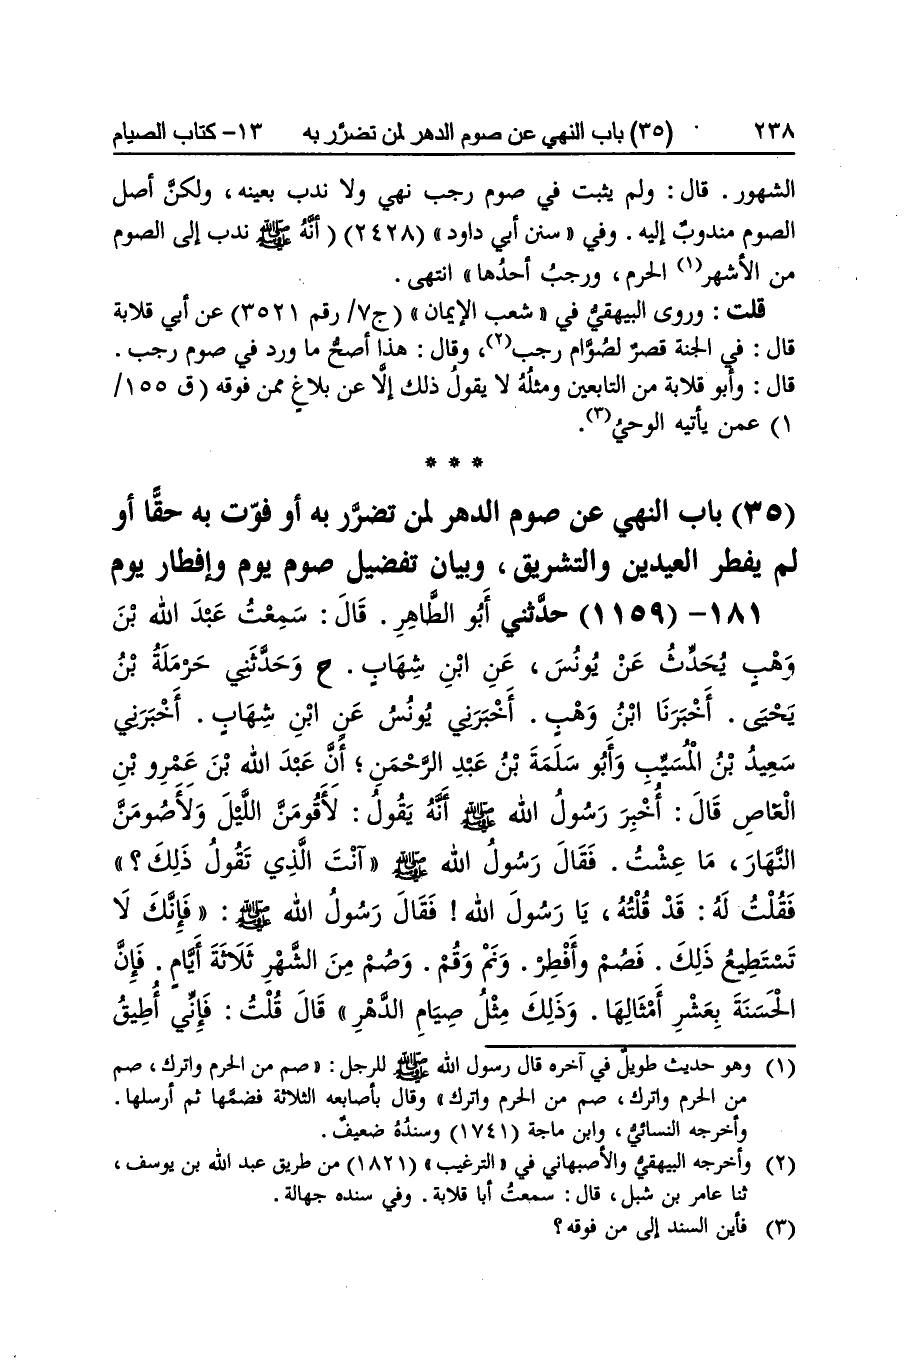 ٢٣٨ (٣٥) باب النهي عن صوم الدهر لمن تضرَّر به ١٣- كتاب الصيام
الشهور . قال : ولم يثبت في صوم رجب نهي ولا ندب بعينه ، ولكنَّ أصل
الصوم مندوبٌ إليه . وفي « سنن أبي داود » (٢٤٢٨) ( أنَّهُ ﷺ ندب إلى الصوم
من الأشهر(١) الحرم ، ورجبُ أحدُها » انتهى .
قلت : وروى البيهقيُّ في « شعب الإيمان » (ج٧/ رقم ٣٥٢١) عن أبي قلابة
قال : في الجنة قصرٌ لصُوَّام رجب(٢)، وقال : هذا أصحُّ ما ورد في صوم رجب .
قال : وأبو قلابة من التابعين ومثلُهُ لا يقولُ ذلك إلَّا عن بلاغٍ ممن فوقه ( ق ١٥٥/
١) عمن يأتيه الوحيُ(٣).
* * *
(٣٥) باب النهي عن صوم الدهر لمن تضرَّر به أو فوّت به حقًّا أو
لم يفطر العيدين والتشريق ، وبيان تفضيل صوم يوم وإفطار يوم
١٨١- (١١٥٩) حدَّثني أَبُو الطَّاهِرِ . قَالَ : سَمِعْتُ عَبْدَ الله بْنَ
وَهْبٍ يُحَدِّثُ عَنْ يُونُسَ ، عَنِ ابْنِ شِهَابٍ . ح وَحَدَّثَنِي حَرْمَلَةُ بْنُ
يَحْيَى . أَخْبَرَنَا ابْنُ وَهْبٍ . أَخْبَرَنِي يُونُسُ عَنِ ابْنِ شِهَابٍ . أَخْبَرَنِي
سَعِيدُ بْنُ الْمُسَيَّبِ وَأَبُو سَلَمَةَ بْنُ عَبْدِ الرَّحْمَنِ ؛ أَنَّ عَبْدَ الله بْنَ عَمْرِو بْنِ
الْعَاصِ قَالَ : أُخْبِرَ رَسُولُ الله ﷺ أَنَّهُ يَقُولُ : لَأَقُومَنَّ اللَّيْلَ وَلَأَصُومَنَّ
النَّهَارَ ، مَا عِشْتُ . فَقَالَ رَسُولُ الله ﷺ « آنْتَ الَّذِي تَقُولُ ذَلِكَ ؟ »
فَقُلْتُ لَهُ : قَدْ قُلْتُهُ ، يَا رَسُولَ الله ! فَقَالَ رَسُولُ الله ﷺ : « فَإِنَّكَ لَا
تَسْتَطِيعُ ذَلِكَ . فَصُمْ وأَفْطِرْ . وَنَمْ وَقُمْ . وَصُمْ مِنَ الشَّهْرِ ثَلَاثَةَ أَيَّامٍ . فَإِنَّ
الْحَسَنَةَ بِعَشْرِ أَمْثَالِهَا . وَذَلِكَ مِثْلُ صِيَامِ الدَّهْرِ » قَالَ قُلْتُ : فَإِنِّي أُطِيقُ
(١) وهو حديث طويلٌ في آخره قال رسول الله ﷺ للرجل : « صم من الحرم واترك ، صم
من الحرم واترك ، صم من الحرم واترك » وقال بأصابعه الثلاثة فضمَّها ثم أرسلها .
وأخرجه النسائيُّ ، وابن ماجة (١٧٤١) وسندُهُ ضعيفٌ .
(٢) وأخرجه البيهقيُّ والأصبهاني في « الترغيب » (١٨٢١) من طريق عبد الله بن يوسف ،
ثنا عامر بن شبل ، قال : سمعتُ أبا قلابة . وفي سنده جهالة .
(٣) فأين السند إلى من فوقه ؟